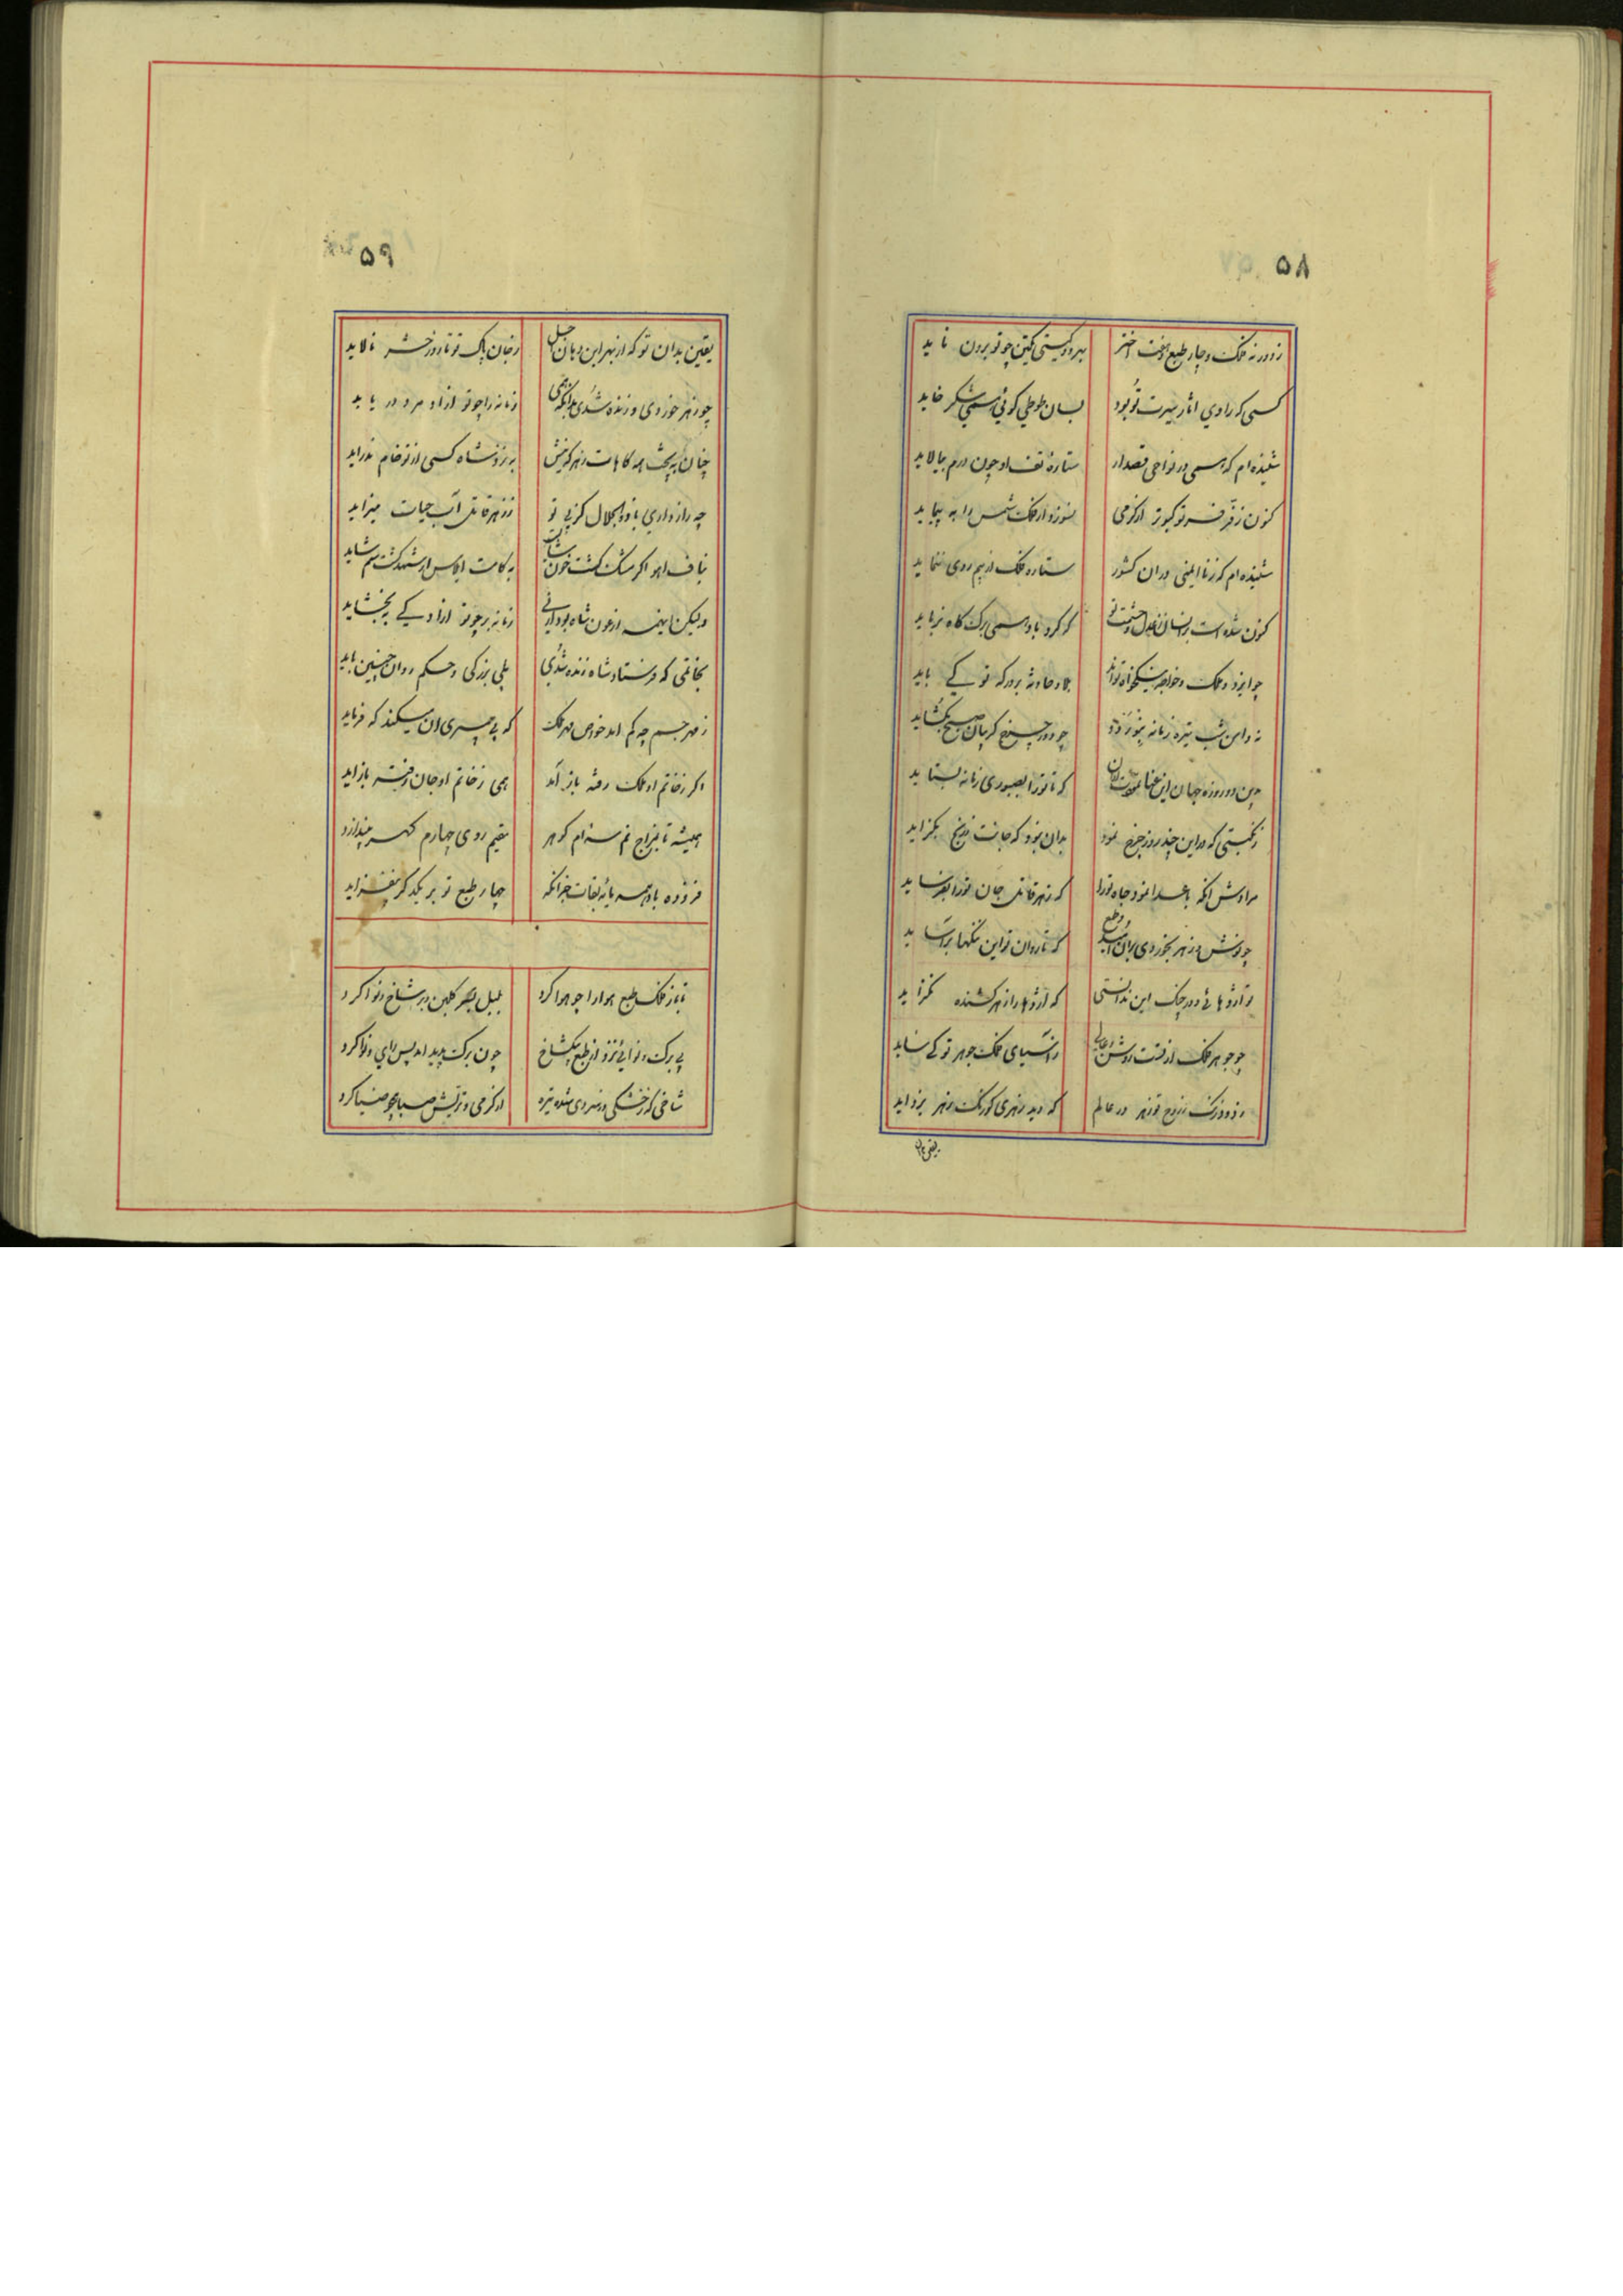 ۵۸
ز دور نه فلک و چار طبع و هفت اختر بهر دو گیتی یکتن چو تو برون ناید
کسی که راوی آثار سیرت تو بود بسان طوطی گوئی همی شکر خاید
شنیده ام که همی در نواحی قصدار ستاره تف او چون درم بپالاید
کنون ز فر تو کبوتر از گرمی بسوزد ار فلک شمس را به پیماید
شنیده ام که ز نا ایمنی در آن کشور ستاره فلک از بیم روی ننماید
کنون شده است بر انسان ز عدل و حشمت تو که گرد باد همی برگ کاه نرباید
چو ایزد و ملک و خواجه نیکخواه تواند بلا و حادثه بر درگه تو کی باید
نه دامن شب تیره زمانه چو دور چرخ گریبان صبح بگشاید
درین دو روزه جهان این که تا تو را بصبوری زمانه بستاید
ز نکبتی که در این چند روز چرخ نمود بدان نبود که جانت ز رنج بگزاید
مرادش آنکه باعدا نمود جاه تو را که زهر قاتل جان تو را نفرساید
چو نوش زهر بخوردی بر آن امید و طمع که تا روان تو این ننگها بر آساید
تو اژدهائی و در چنگ این ندانستی که اژدها را زهر کشنده نگزاید
چو جوهر فلک از فتنت روشن در آسیای فلک جوهر تو کی ساید
زدود زنگ ز روح تو زهر در عالم که دید زهری کو زنگ زهر بزداید
یقین بدان
۵۹
یقین بدان تو که از بهر این دهان اجل ز جان پاک تو تا روز حشر نالاید
چو زهر خوردی و زنده شدی بدانکه همی زمانه را چو تو آزاد مرد در باید
چنان بپخت همه کامهات زهر کز پیش به نزد شاه کسی از تو خام ندراید
چه راز داری با ذوالجلال کز پی تو ز زهر قاتل آب حیات میزاید
بناف آهو اگر مشک گشت خون شاید به کامت ای کس ار شهد گشت سم شاید
ولیکن اینهمه از عون شاه بود ار نی زمانه بر چو تو آزاد کی ببخشاید
بخاتمی که فرستاد شاه زنده شدی بلی بزرگی و حکم روان چنین باید
ز مهر جسم چه کم آمد خواص مهر ملک که بی پری آن میکند که فرماید
اگر ز خاتم او ملک رفته باز آمد همی ز خاتم او جان رفته باز آید
همیشه تا بمزاج نم سه ام گوهر مقیم روی چهارم گهر
فزوده باد همه پایه بقات جز آنکه چهار طبع تو بر یکدگر بنفزاید
تا باز فلک طبع هوا را چو هوا کرد بلبل بسر گلبن و بر شاخ نوا کرد
بی برگ نوائی نزد از طبع به یکشاخ چون برگ پدید آمد پس رای نوا کرد
شاخی که ز خشکی و ز سردی شده تیره از گرمی و تریش صبا پر ز ضیا کرد